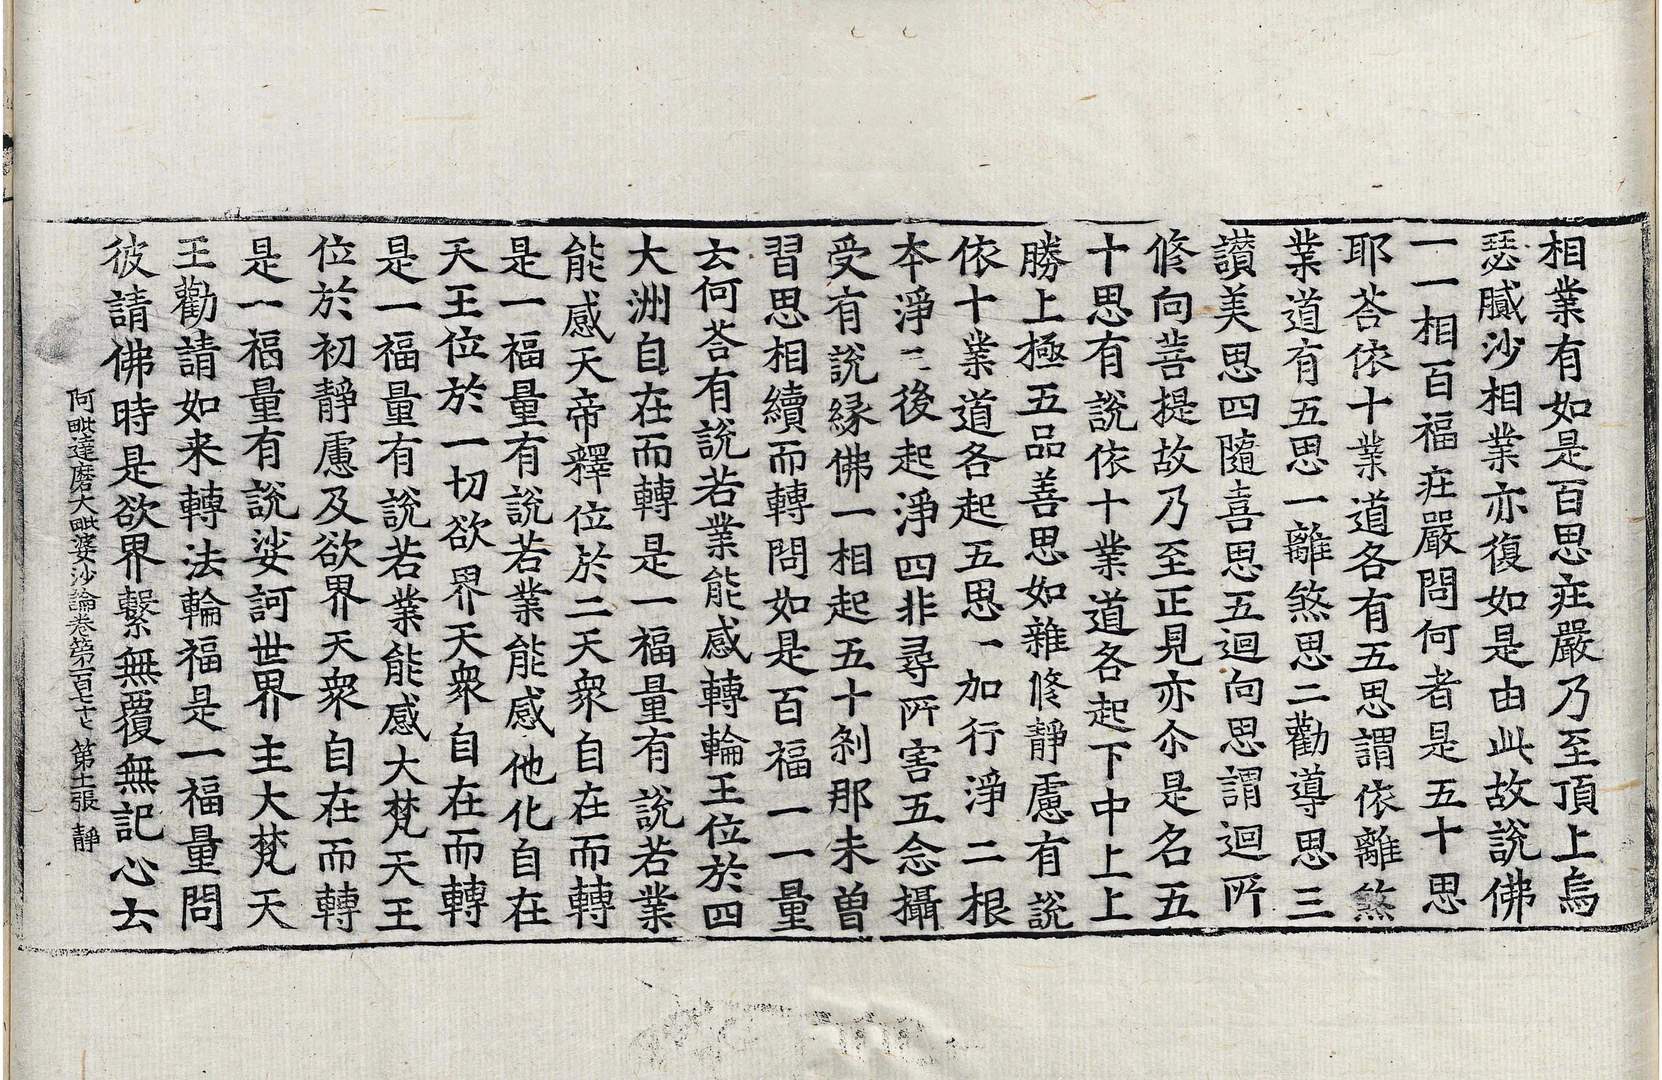 相業有如是百思庄嚴乃至頂上烏
瑟膩沙相業亦復如是由此故說佛
一一相百福庄嚴問何者是五十思
耶荅依十業道各有五思謂依離煞
業道有五思一離煞思二勸導思三
讃美思四隨喜思五迴向思謂迴所
修向菩提故乃至正見亦尒是名五
十思有說依十業道各起下中上上
勝上極五品善思如雜修靜慮有說
依十業道各起五思一加行淨二根
本淨三後起淨四非尋所害五念攝
受有說緣佛一相起五十剎那未曾
習思相續而轉問如是百福一一量
云何荅有說若業能感轉輪王位於四
大洲自在而轉是一福量有說若業
能感天帝釋位於二天衆自在而轉
是一福量有說若業能感他化自在
天王位於一切欲界天衆自在而轉
是一福量有說若業能感大梵天王
位於初靜慮及欲界天衆自在而轉
是一福量有說娑訶世界主大梵天
王勸請如来轉法輪福是一福量問
彼請佛時是欲界繫無覆無記心云
阿毗達磨大毗婆沙論卷第一百七十七 第十一張 靜